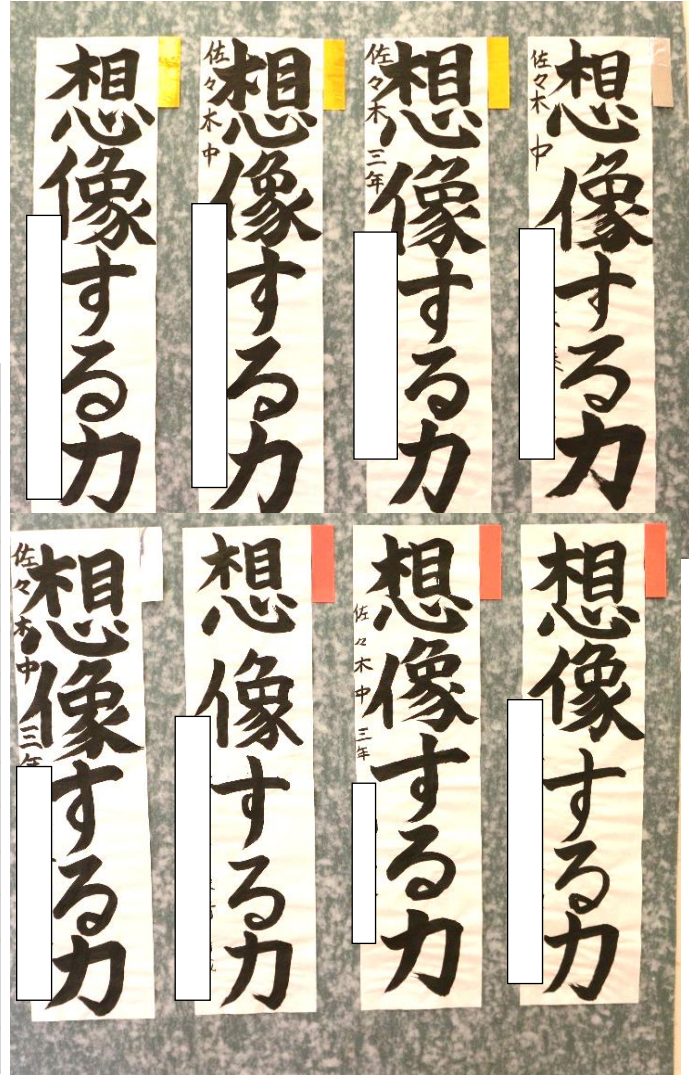 想像する力
想像する力
佐々木中
想像する力
佐々木 三年
想像する力
佐々木中
想像する力
佐々木中 三年
想像する力
想像する力
佐々木中 三年
想像する力